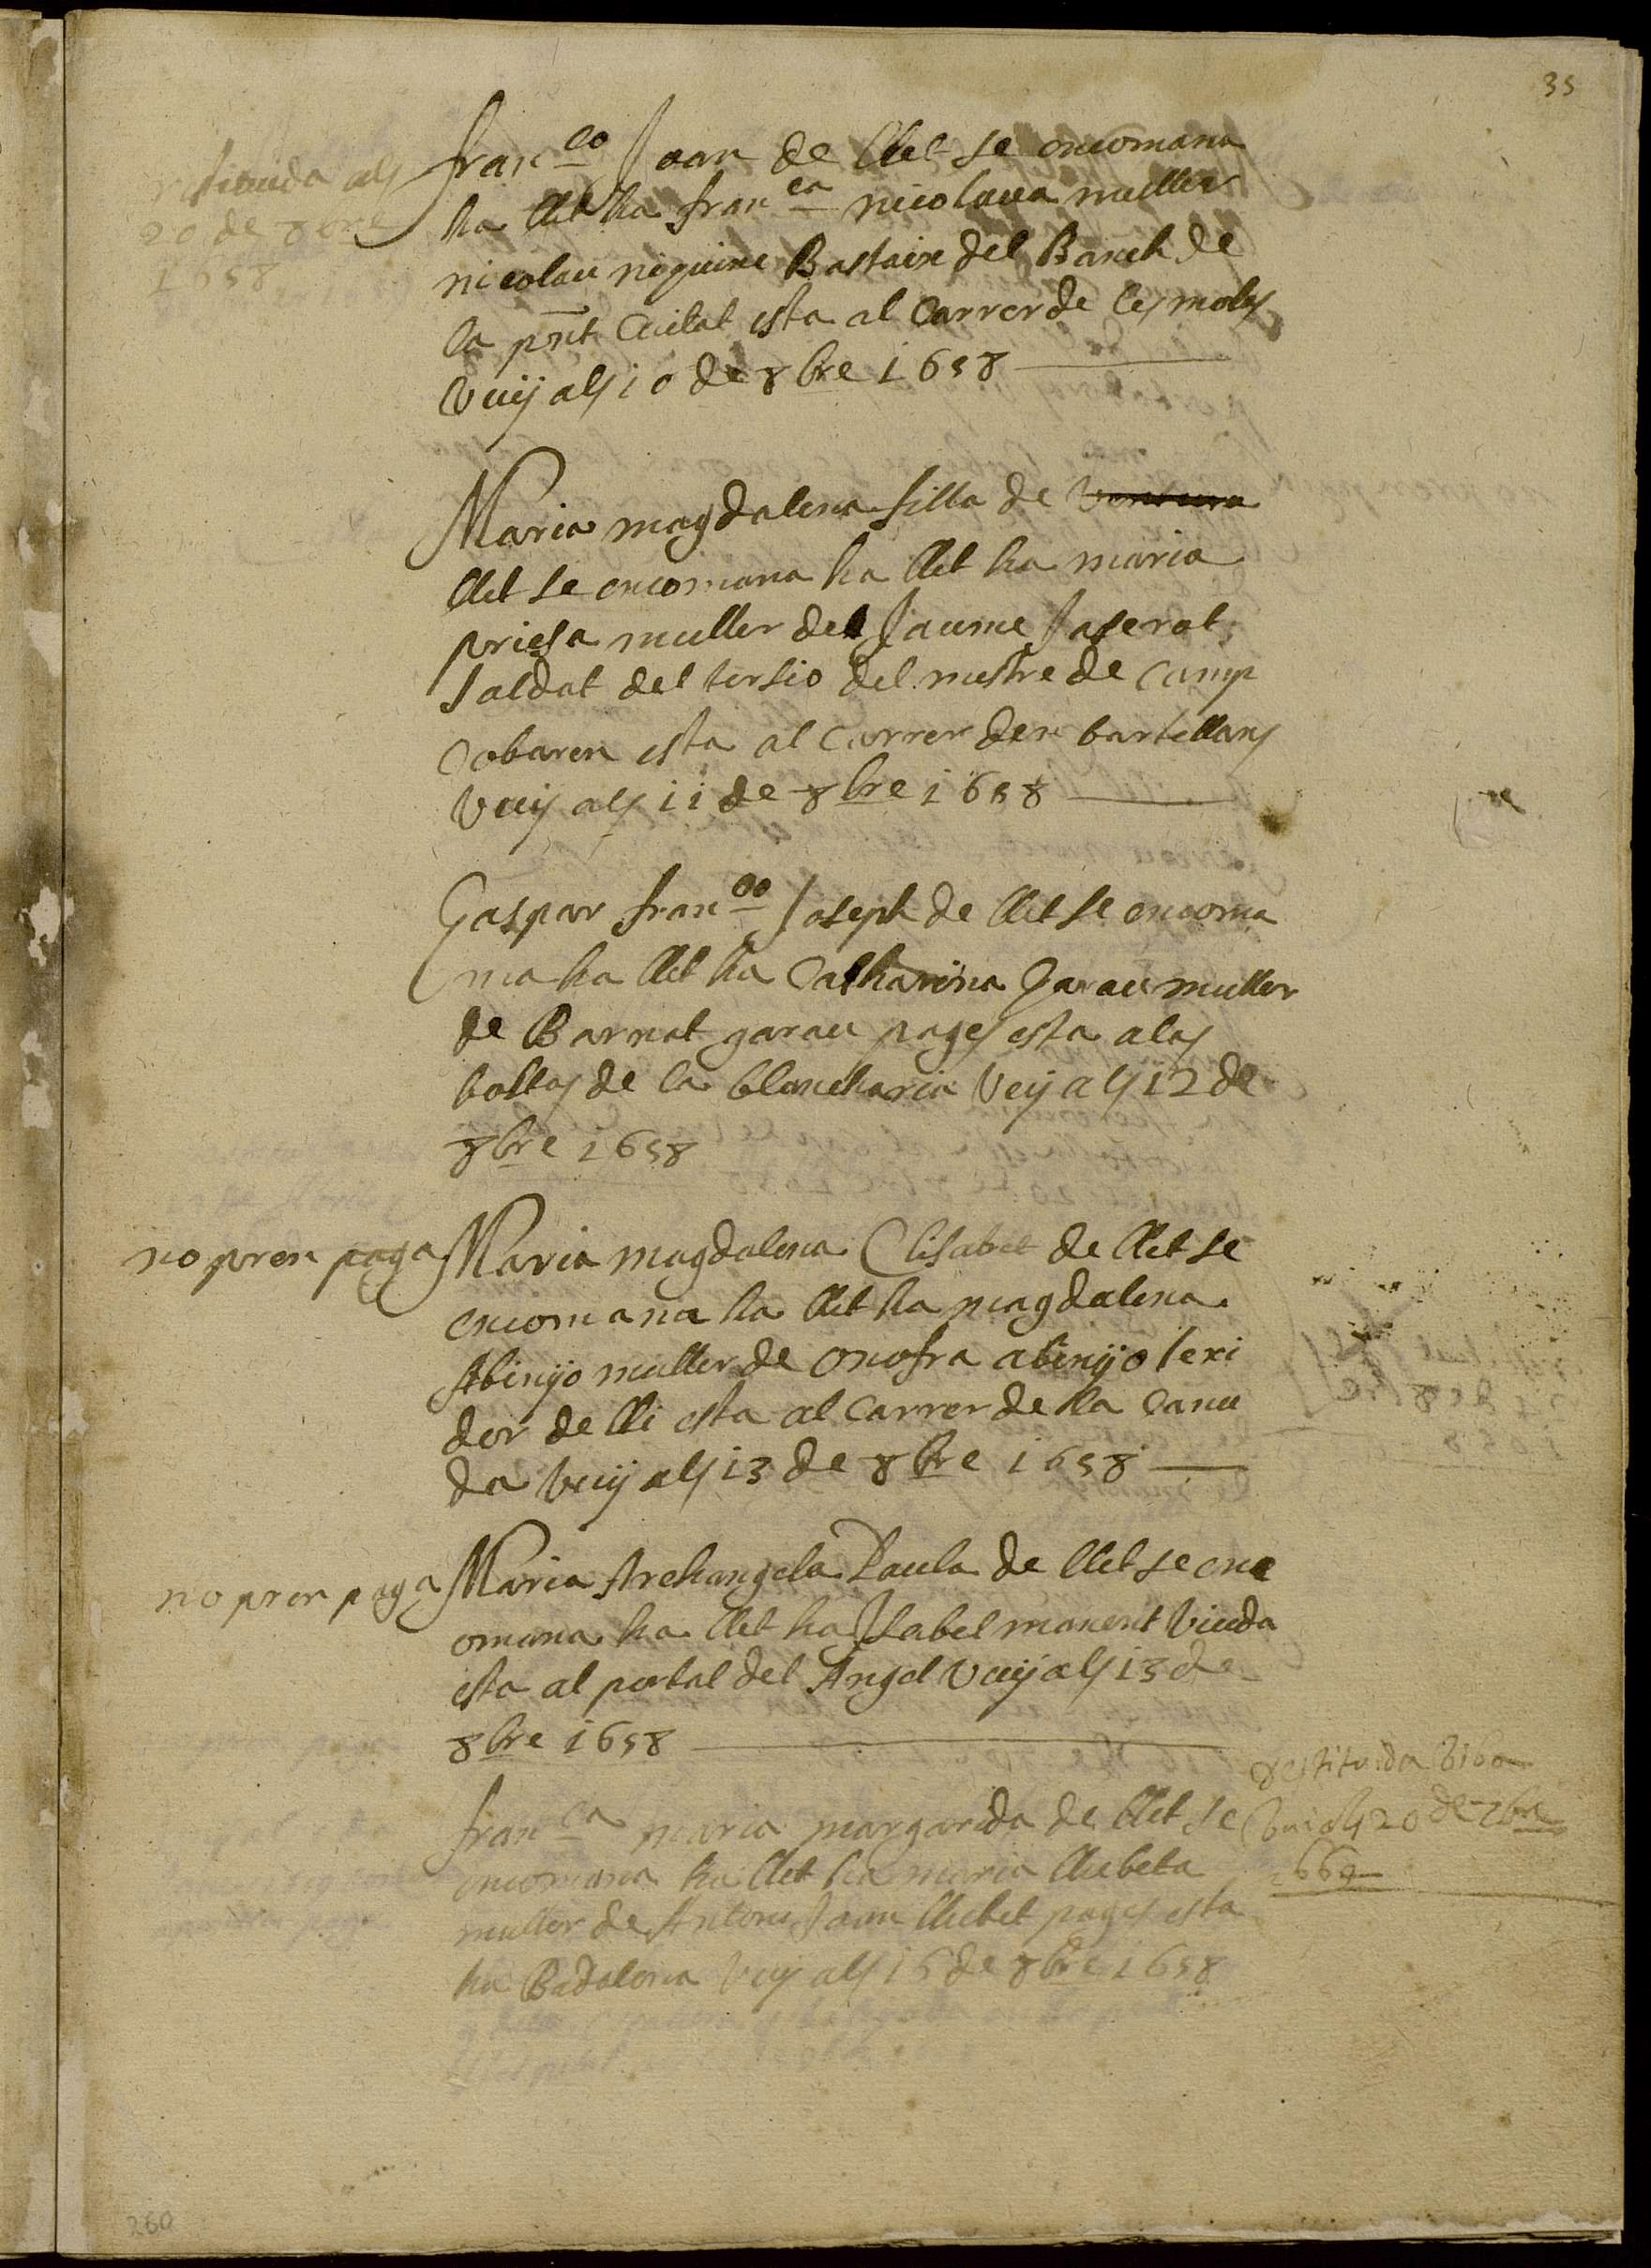 35
restituida als
20 de 8bre
1658
fran.co Joan de llet se encomana
ha llet ha fran.ca nicolaua muller
nicolau niquine Bastaix del Banch de
la pnt Ciutat esta al Carrer de les moles
Vuij als 10 de 8bre 1658
Maria magdalena filla de
llet se encomana ha llet ha maria
priesa muller de Jaume Jaserat
saldat del tersio del mestre de Camp
esta al Carrer den bartellans
Vuij als 11 de 8bre 1658
Gaspar fran.co Joseph de llet se encoma
na ha llet ha Catharina Garau muller
de Barnat garau pages esta a las
boltas de la blancharia Vuij als 12 de
8bre 1658
no pren paga
Maria magdalena Elisabet de llet se
encomana ha llet ha magdalena
Abinyo muller de onofra abinyo texi
dor de lli esta al Carrer de la Canu
da Vuij als 13 de 8bre 1658
no pren paga
Maria Archangela Paula de llet se enc
omana ha llet ha Isabel manent Viuda
esta al portal del Angel Vuij als 13 de
8bre 1658
restituida biba
bui als 20 de 7bre
fran.ca maria margarida de llet se
encomana ha llet ha maria llubeta
muller de Antoni Joan llubet pages esta
ha Badalona Vuij als 15 de 8bre 1658
260